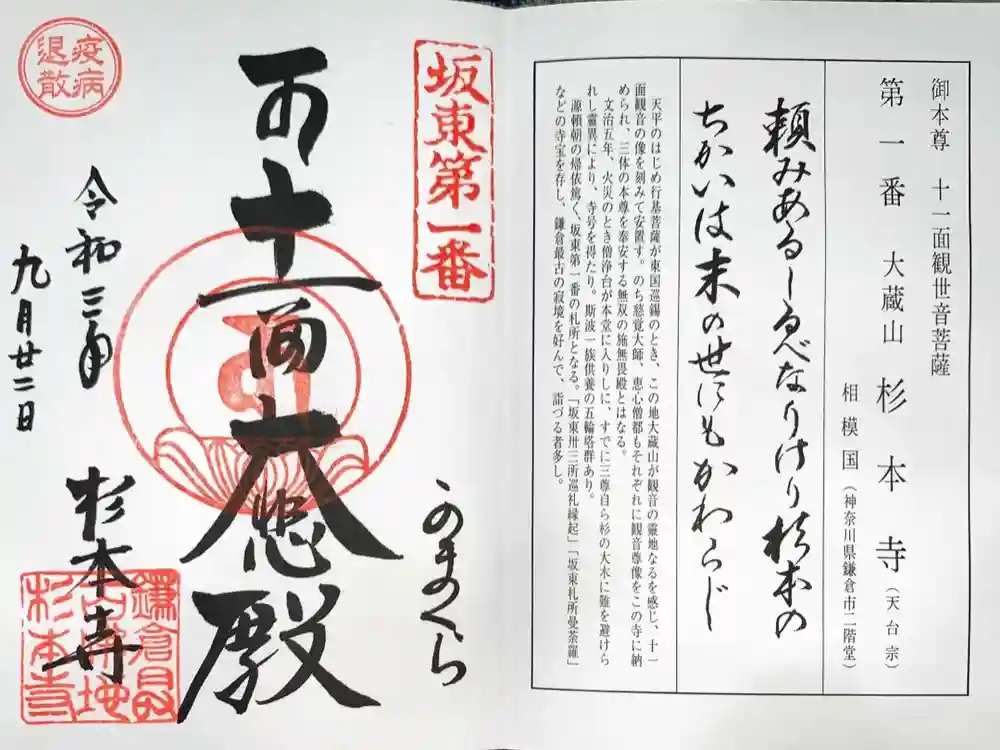 御本尊 十一面観世音菩薩
第一番 大蔵山 杉本寺(天台宗)
相模国(神奈川県鎌倉市二階堂)
頼みあるしるべなりけり杉本の
ちかいは末の世にもかわらじ
天平のはじめ行基菩薩が東国巡錫のとき、この地大蔵山が観音の霊地なるを感じ、十一
面観音の像を刻みて安置す。のち慈覚大師、恵心僧都もそれぞれに観音尊像をこの寺に納
められ、三体の本尊を奉安する無双の施無畏殿とはなる。
文治五年、火災のとき僧浄台が本堂に入りしに、すでに三尊自ら杉の大木に難を避けら
れし霊異により、寺号を得たり。斯波一族供養の五輪塔群あり。
源頼朝の帰依篤く、坂東第一番の札所となる。「坂東卅三所巡礼縁起」「坂東札所曼荼羅」
などの寺宝を存し、鎌倉最古の寂境を好んで、詣づる者多し。
坂東第一番
かまくら
十一面大悲殿
疫病
退散
令和三年
九月廿二日
杉本寺
鎌倉最
古霊地
杉本寺